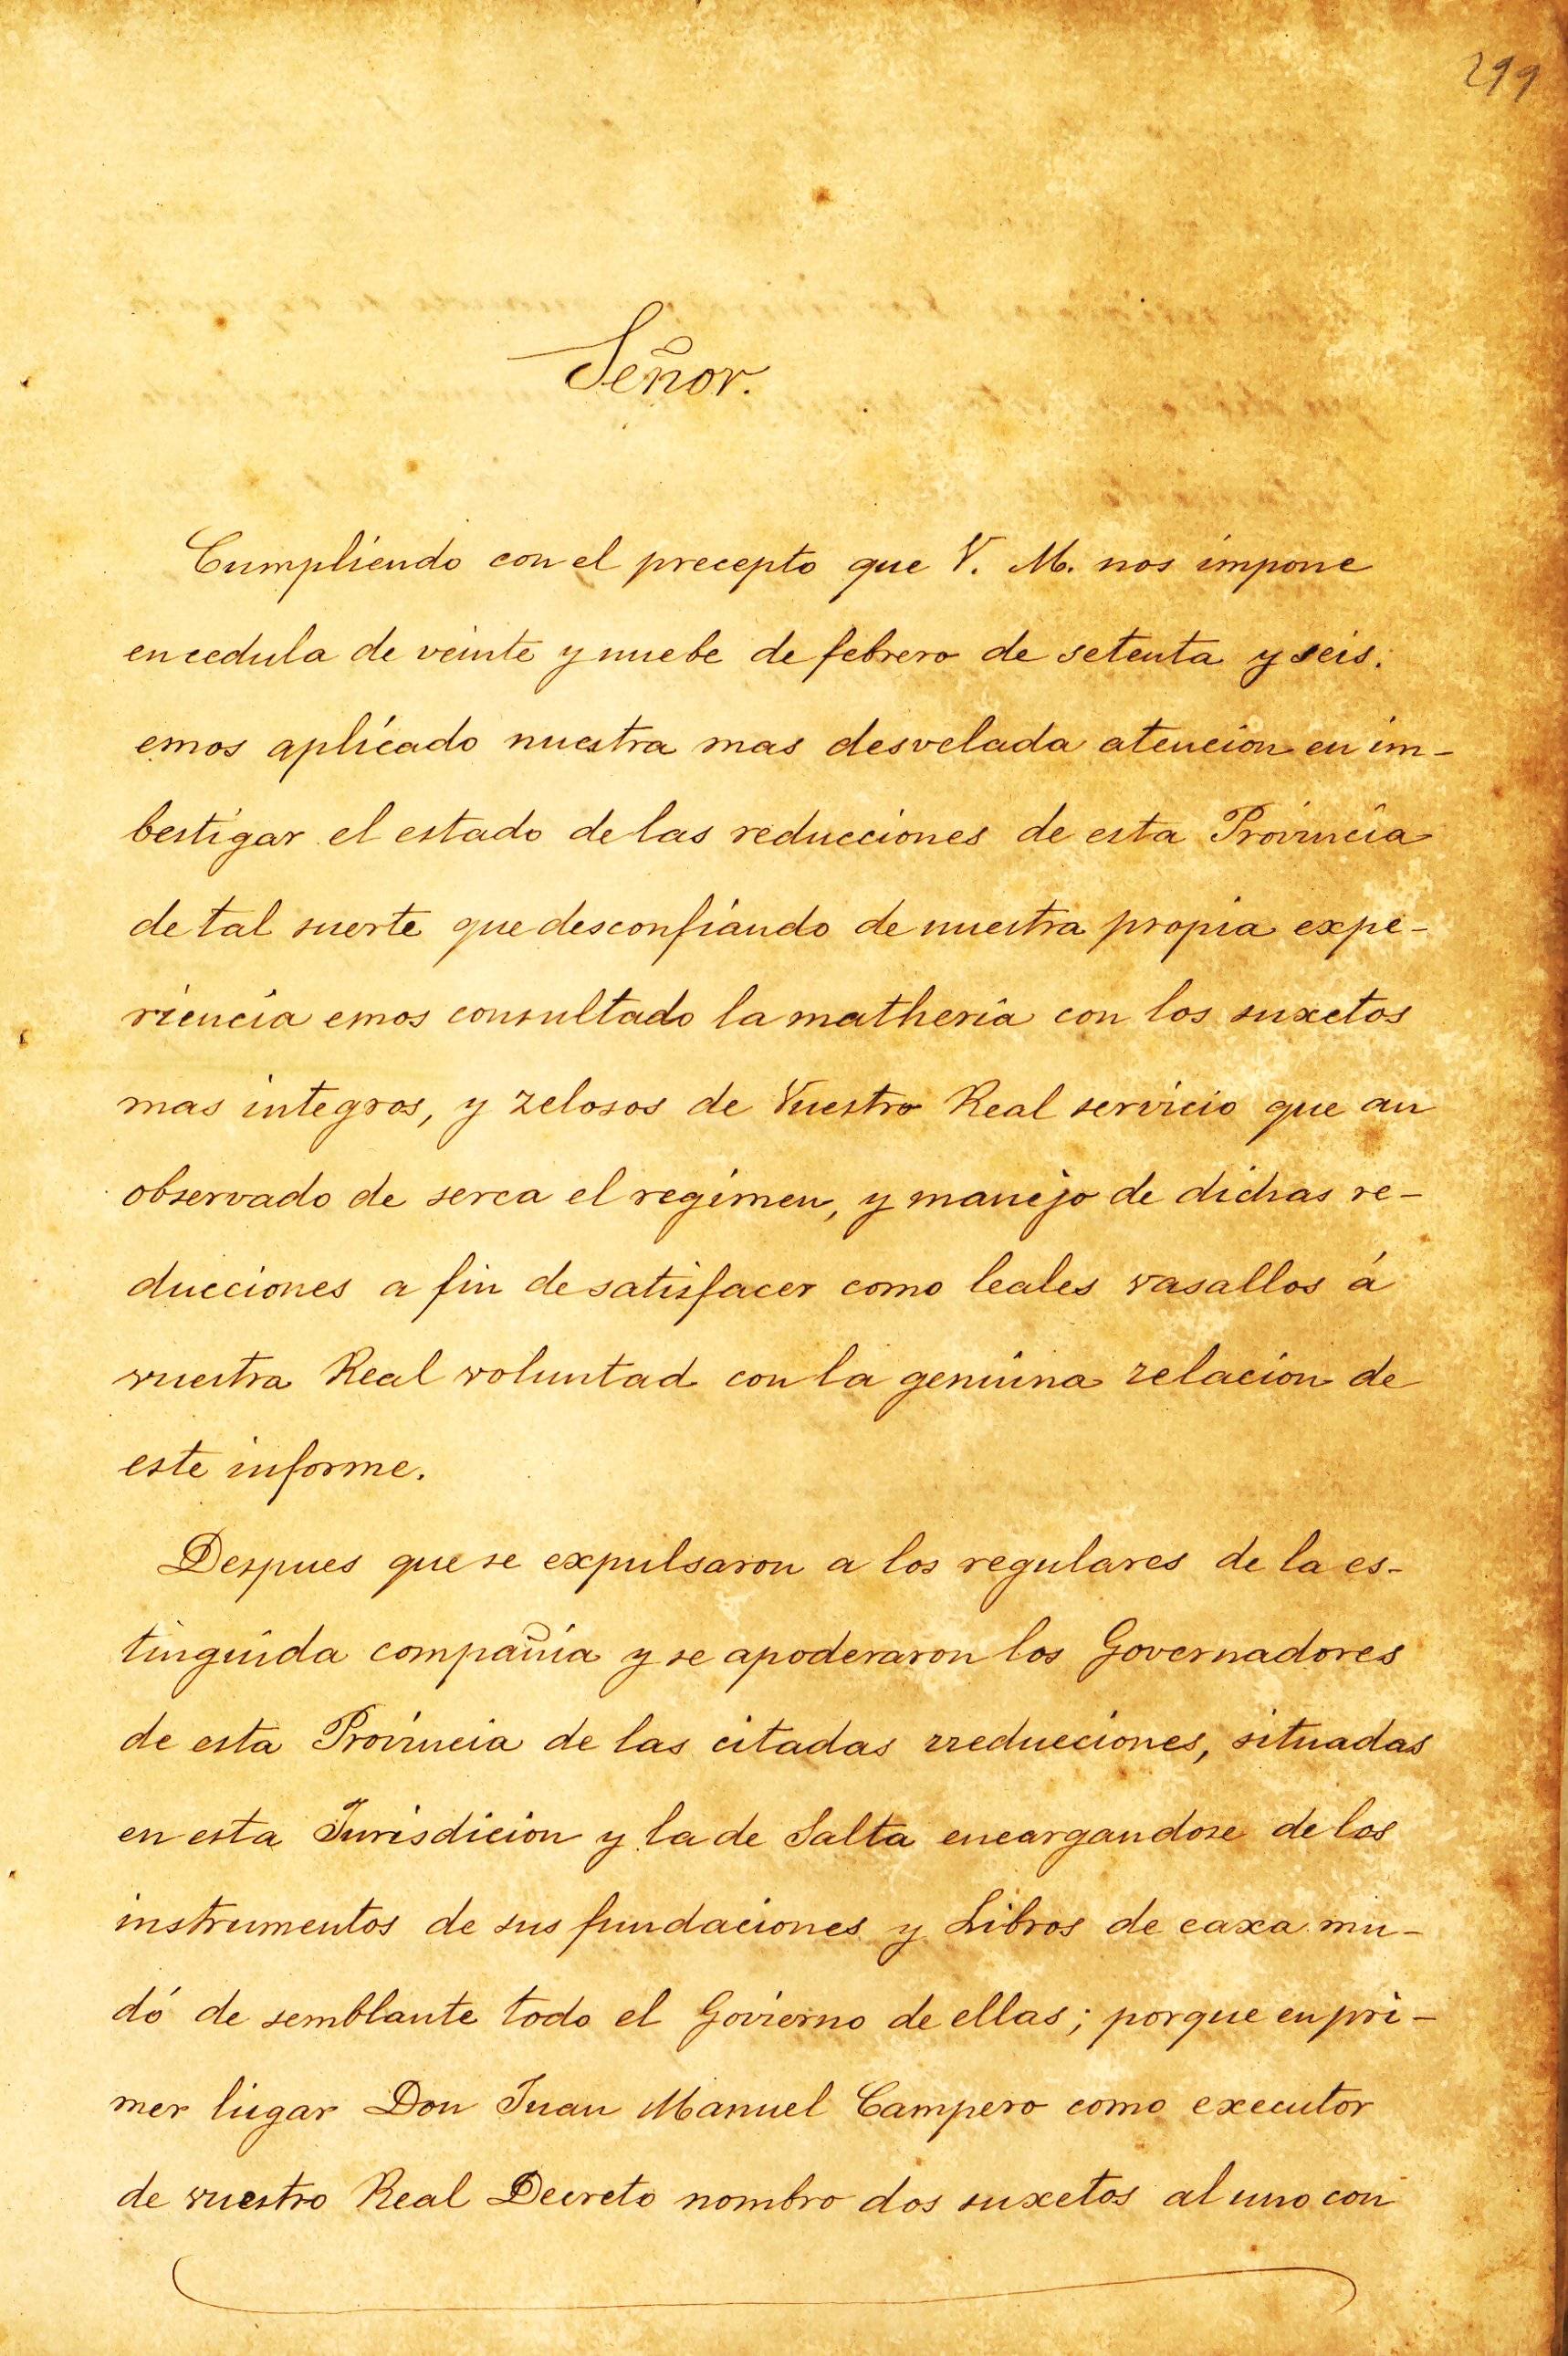 299
Señor.
Cumpliendo con el precepto que V. M. nos impone
en cedula de veinte y nuebe de febrero de setenta y seis.
emos aplicado nuestra mas desvelada atencion en im-
bestigar el estado de las reducciones de esta Provincia
de tal suerte que desconfiando de nuestra propia expe-
riencia emos consultado la matheria con los suxetos
mas integros, y zelosos de Vuestro Real servicio que an
observado de serca el regimen, y manejo de dichas re-
ducciones a fin de satisfacer como leales vasallos á
vuestra Real voluntad con la genuina relacion de
este informe.
Despues que se expulsaron a los regulares de la es-
tinguida compañia y se apoderaron los Governadores
de esta Provincia de las citadas rreducciones, situadas
en esta Jurisdicion y la de Salta encargandose de los
instrumentos de sus fundaciones y Libros de caxa mu-
dó de semblante todo el Govierno de ellas; porque en pri-
mer lugar Don Juan Manuel Campero como executor
de vuestro Real Decreto nombro dos suxetos al uno con